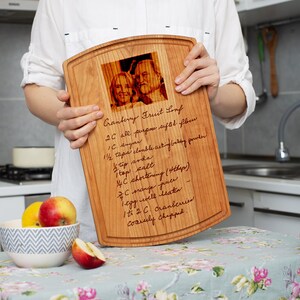 Cranberry Fruit Loaf
2 C all purpose flour
1 C sugar
1 ½ tsps double acting baking powder
½ tsp soda
1 tsp salt
¼ C shortening
¾ C orange juice
1 egg well beaten
1 to 2 C cranberries
coarsely chopped